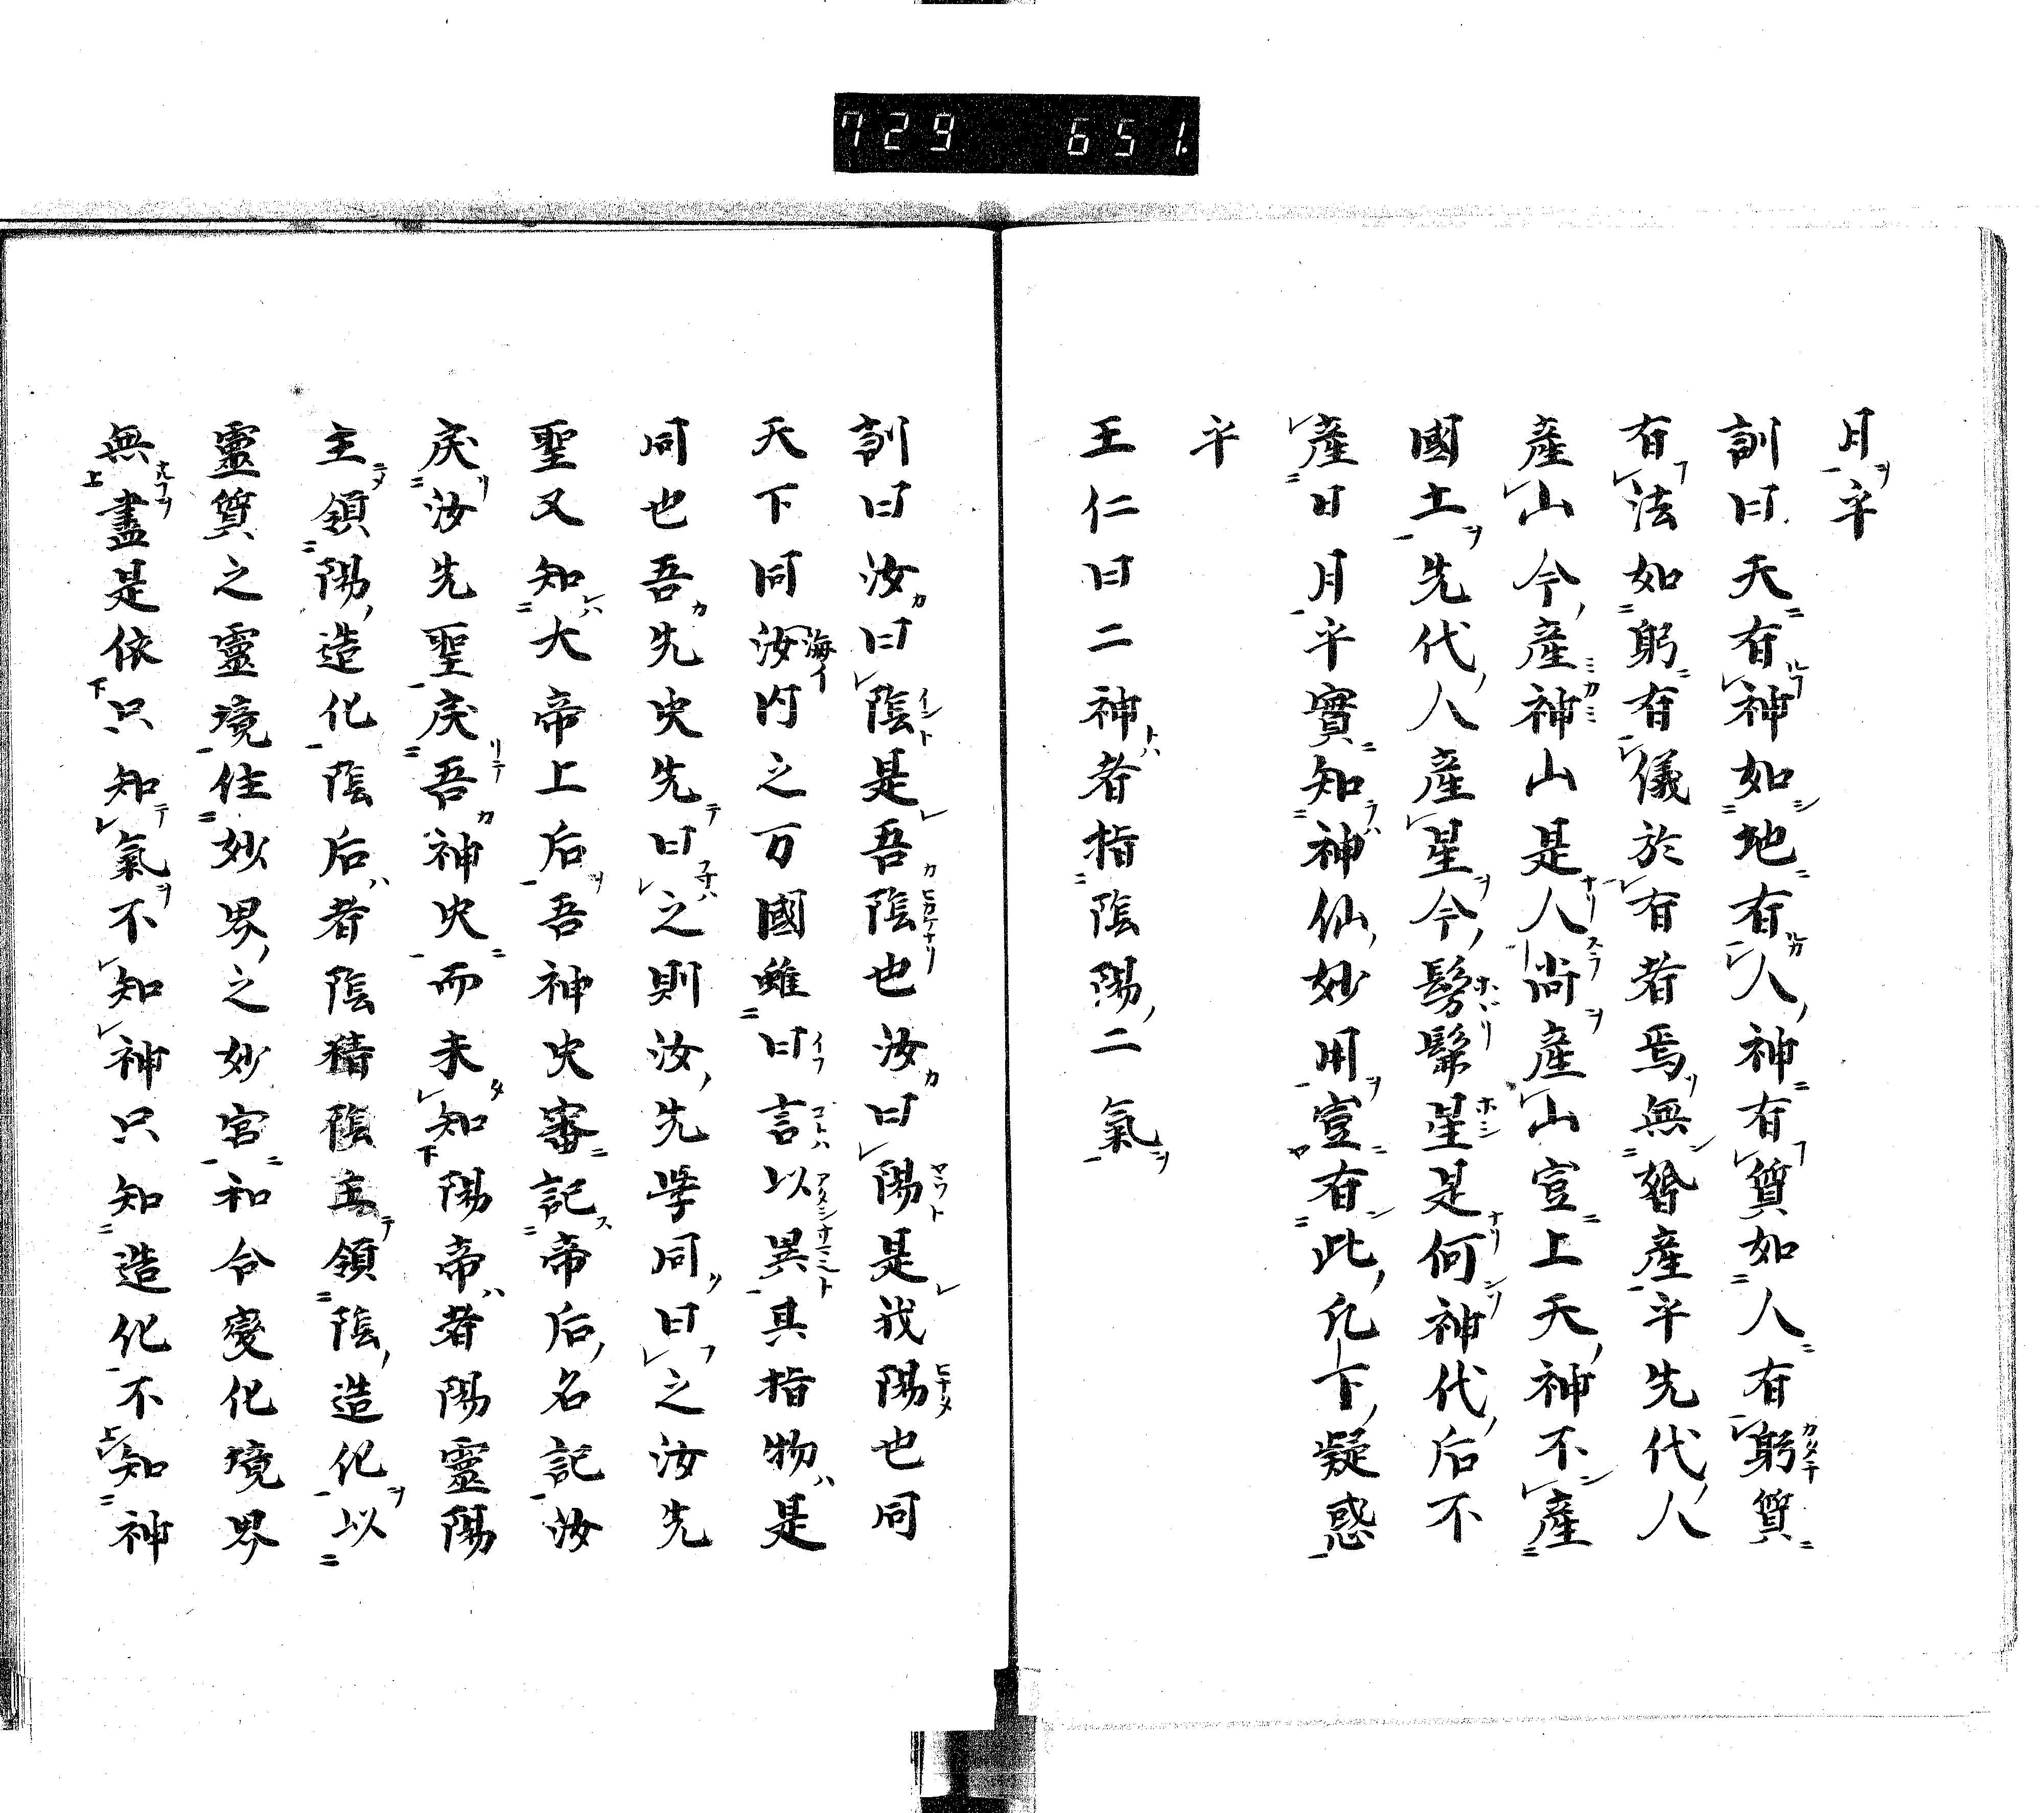 729 651.
月乎
訓曰天有神如地有人神有質如人有躬質
有法如躬有儀於有者焉無㛰產乎先代人
產山今產神山是人尚產山豈上天神不產
國土先代人產星今髣髴星是何神代后不
產日月乎實知神仙妙用豈有此凡下疑惑
乎
王仁曰二神者指陰陽二氣
訓曰汝曰陰是吾陰也汝曰陽是我陽也同
天下同汝内之万國雖曰言以異其指物是
同也吾先史先曰之則汝先學同曰之汝先
聖又知大帝上后吾神史審記帝后名記汝
戾汝先聖戾吾神史而未知陽帝者陽靈陽
主領陽造化陰后者陰精陰主領陰造化以
靈質之靈境住妙界之妙宮和合變化境界
無盡是依只知氣不知神只知造化不知神